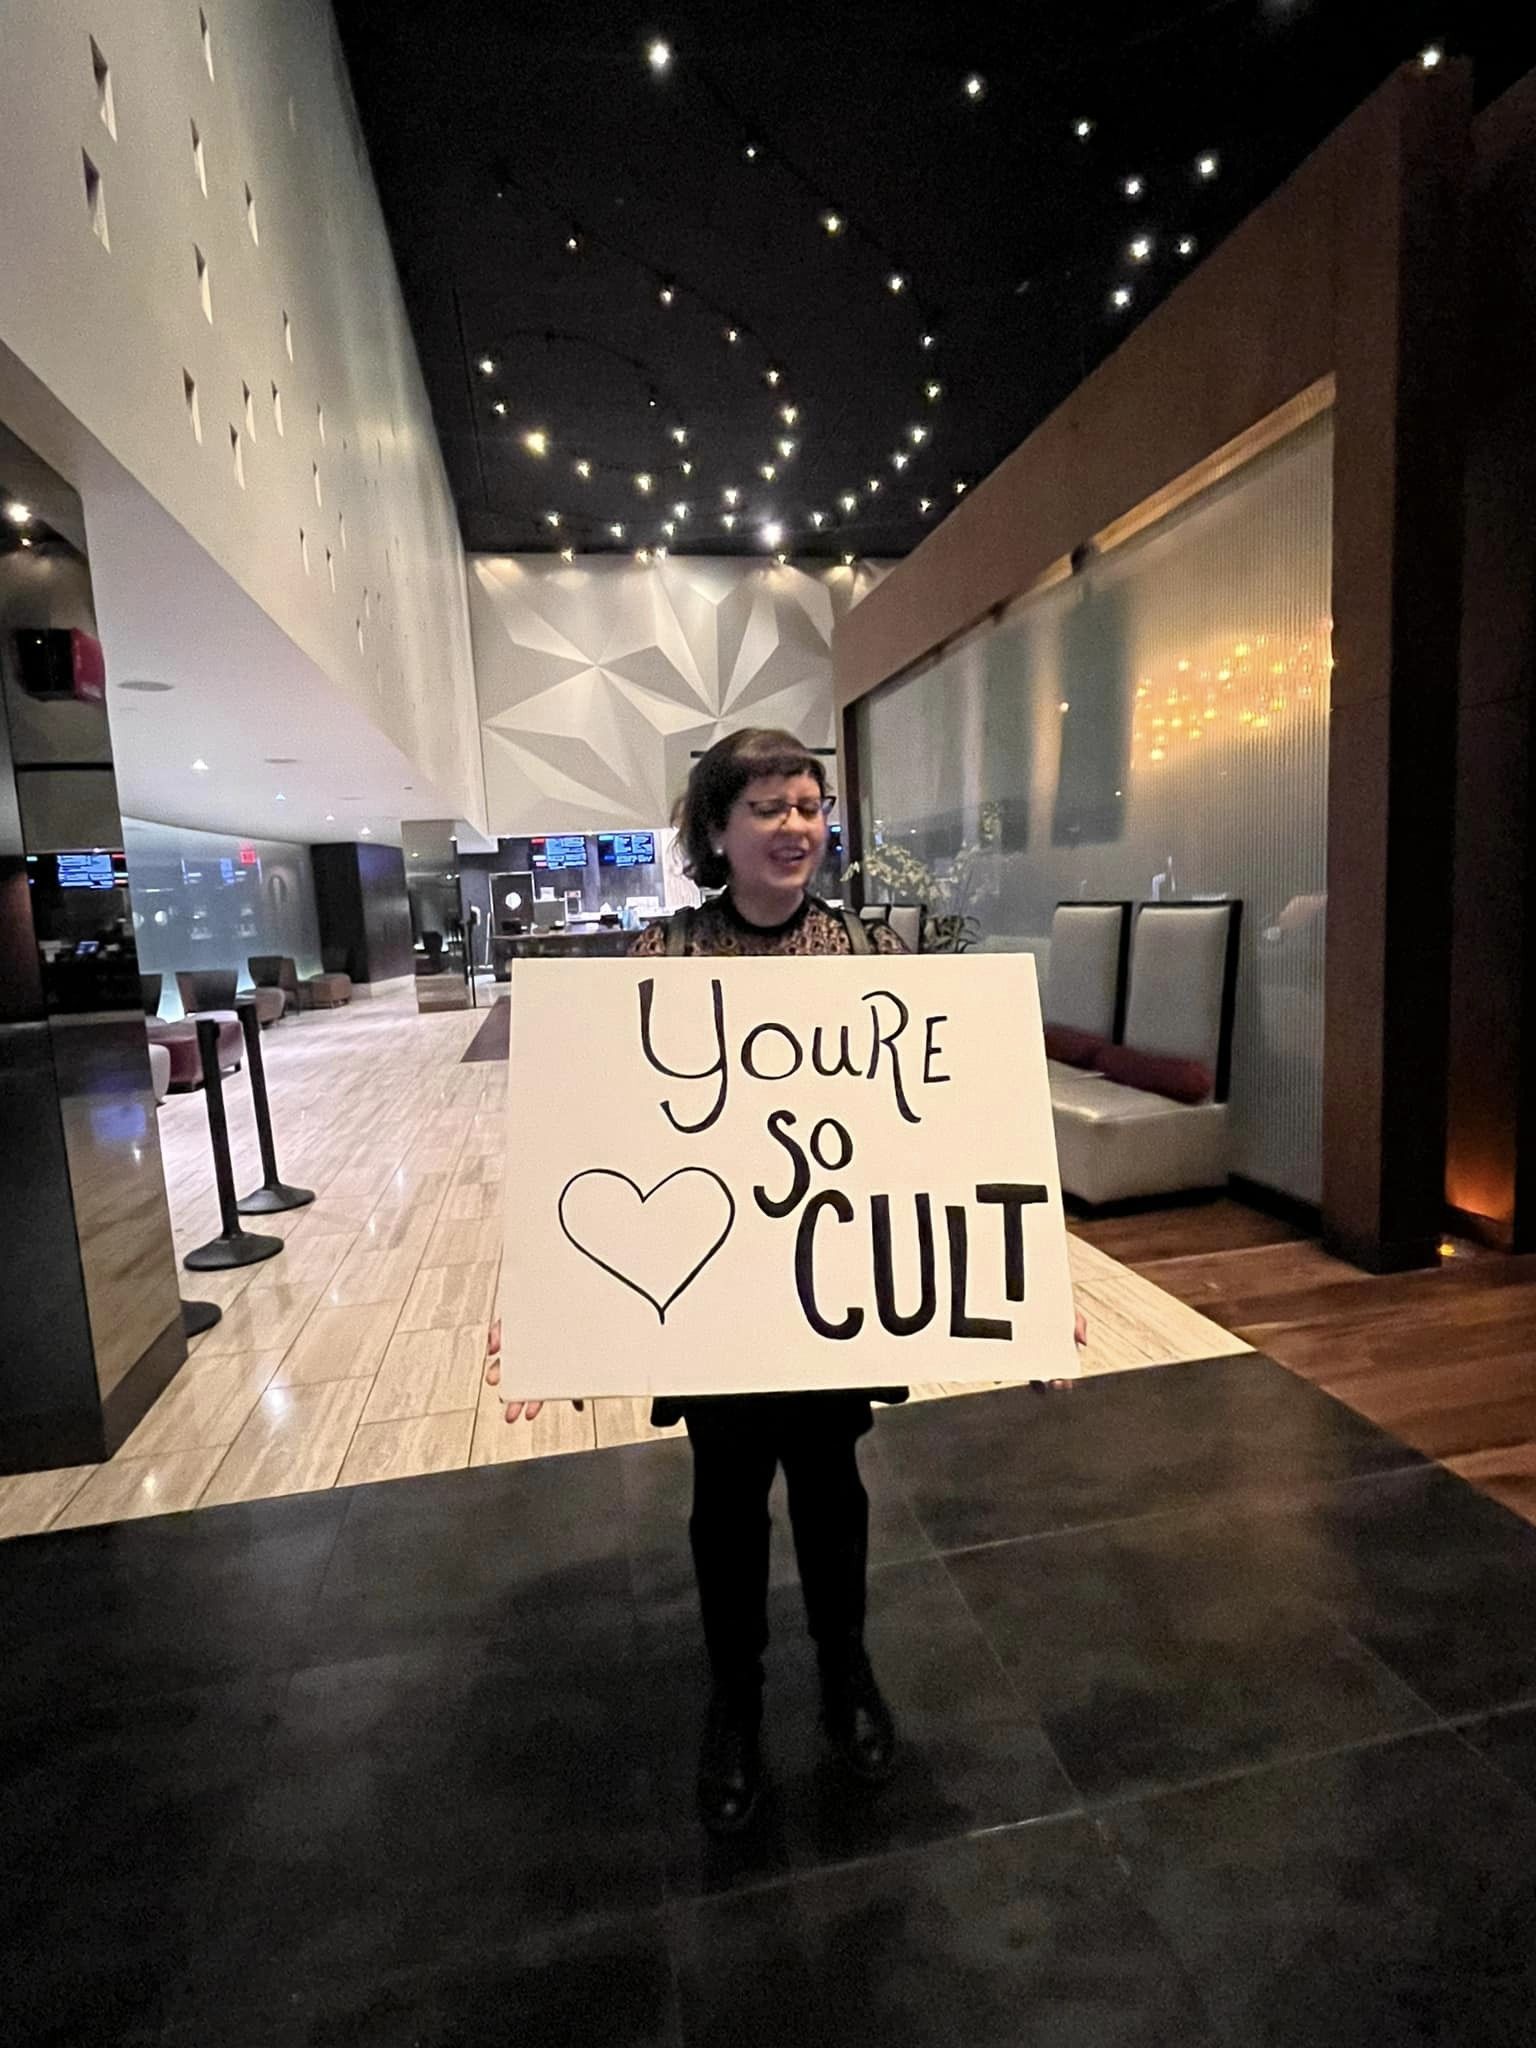 YouRE
SO
CULT